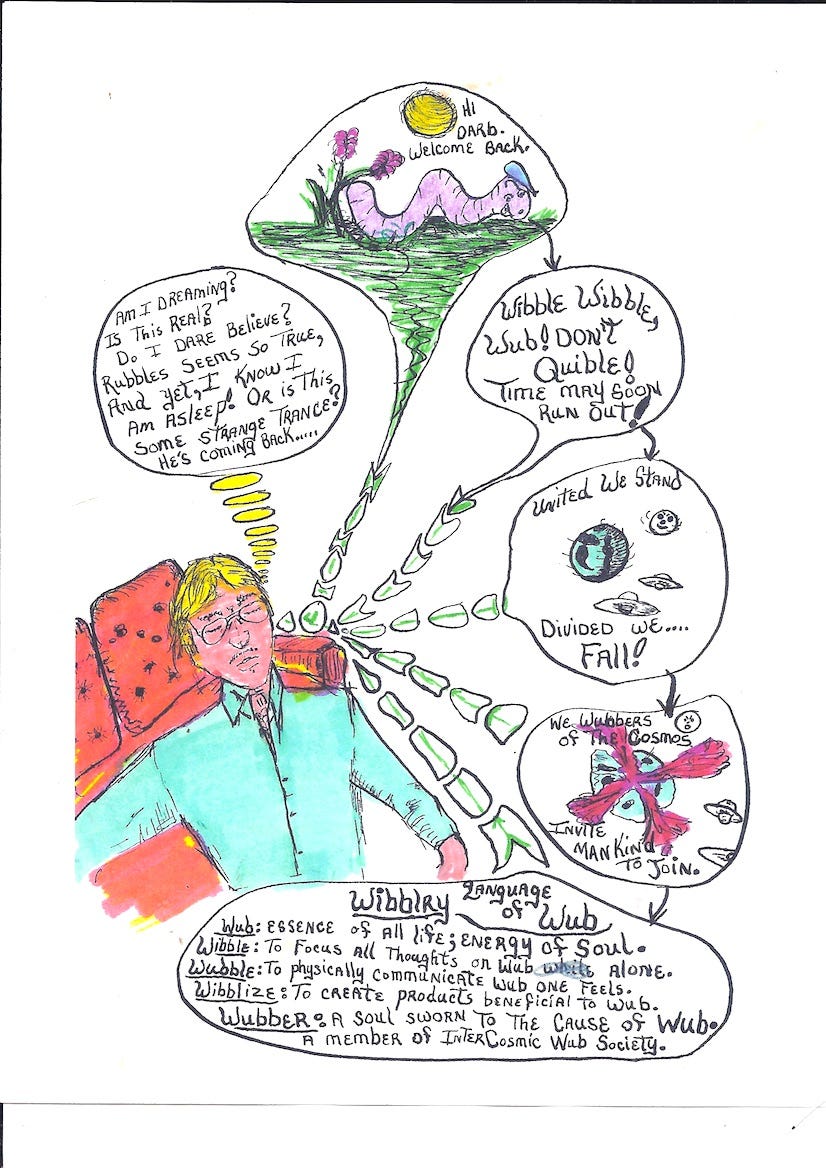 Hi
Darb.
Welcome Back.
Am I Dreaming?
Is This Real?
Do I Dare Believe?
Rubbles Seems So True,
And Yet, I Know I
Am Asleep! Or is This
Some Strange Trance?
He's Coming Back.....
Wibble Wibble,
Wub! Don't
Quible!
Time May Soon
Run Out!
United We Stand
Divided We....
Fall!
We Wubbers
of The Cosmos
Invite
Mankind
To Join.
Wibblry Language
of Wub
Wub: Essence of All Life; Energy of Soul.
Wibble: To Focus All Thoughts on Wub while Alone.
Wubble: To physically communicate Wub one feels.
Wibblize: To create products beneficial to Wub.
Wubber: A Soul Sworn To The Cause of Wub.
A member of InterCosmic Wub Society.